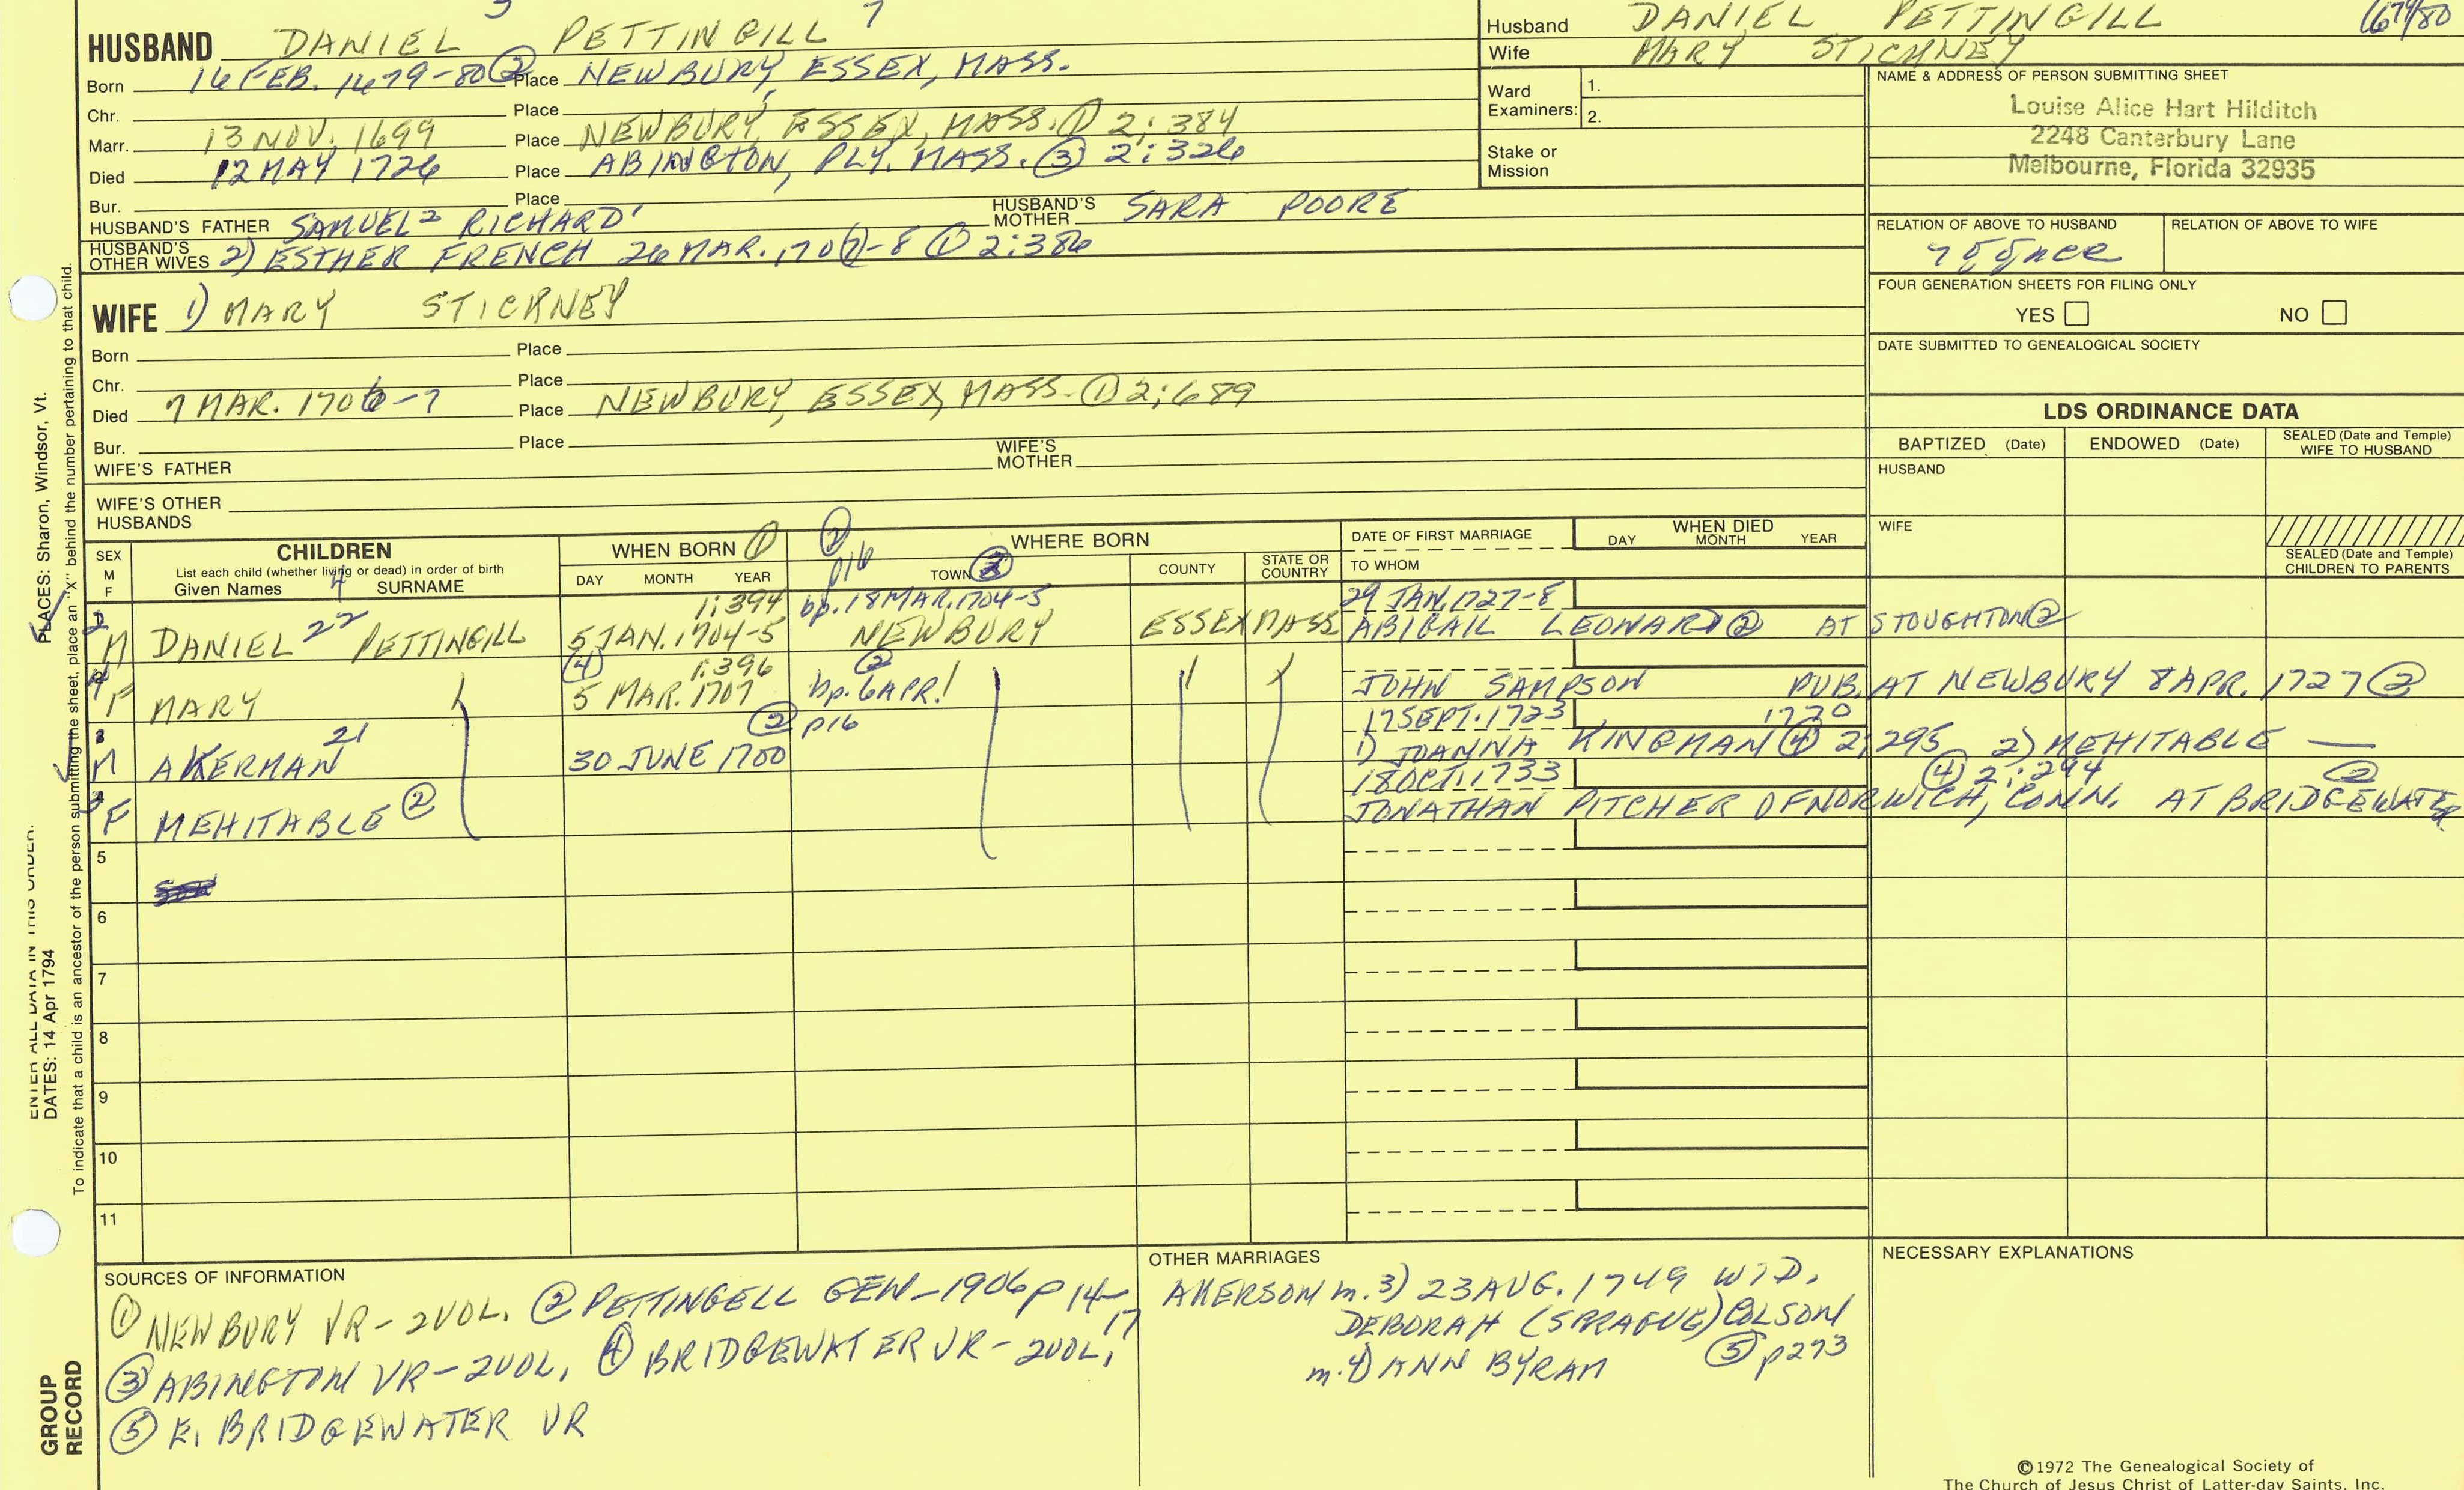 HUSBAND DANIEL PETTINGILL
Born 16 FEB. 1679-80 ② Place NEWBURY, ESSEX, MASS.
Chr. Place
Marr. 13 NOV. 1699 Place NEWBURY, ESSEX, MASS. ① 2:384
Died 12 MAY 1726 Place ABINGTON, PLY. MASS. ③ 2:326
Bur. Place
HUSBAND'S FATHER SAMUEL² RICHARD¹ HUSBAND'S MOTHER SARA POORE
HUSBAND'S OTHER WIVES 2) ESTHER FRENCH 26 MAR. 1707-8 ① 2:386
WIFE 1) MARY STICKNEY
Born Place
Chr. Place
Died 7 MAR. 1706-7 Place NEWBURY, ESSEX, MASS. ① 2:689
Bur. Place
WIFE'S FATHER WIFE'S MOTHER
WIFE'S OTHER HUSBANDS
Husband DANIEL PETTINGILL
Wife MARY STICKNEY
Ward Examiners: 1.
2.
Stake or Mission
NAME & ADDRESS OF PERSON SUBMITTING SHEET
Louise Alice Hart Hilditch
2248 Canterbury Lane
Melbourne, Florida 32935
RELATION OF ABOVE TO HUSBAND RELATION OF ABOVE TO WIFE
FOUR GENERATION SHEETS FOR FILING ONLY
YES NO
DATE SUBMITTED TO GENEALOGICAL SOCIETY
LDS ORDINANCE DATA
BAPTIZED (Date) ENDOWED (Date) SEALED (Date and Temple) WIFE TO HUSBAND
HUSBAND
WIFE
SEALED (Date and Temple) CHILDREN TO PARENTS
SEX M F
CHILDREN
List each child (whether living or dead) in order of birth
Given Names 4 SURNAME
WHEN BORN ①
DAY MONTH YEAR
② p16
WHERE BORN
TOWN COUNTY STATE OR COUNTRY
DATE OF FIRST MARRIAGE
TO WHOM
WHEN DIED
DAY MONTH YEAR
1:394 bp. 18 MAR. 1704-5 29 JAN. 1727-8
M DANIEL 22 PETTINGILL 5 JAN. 1704-5 NEWBURY ESSEX MASS ABIGAIL LEONARD ② AT STOUGHTON ②
④ 1:396 ②
F MARY 5 MAR. 1707 bp. 6 APR. JOHN SAMPSON PUB. AT NEWBURY 8 APR. 1727 ②
② p16 17 SEPT. 1723
M AKERMAN 21 30 JUNE 1700 1) JOANNA KINGMAN ④ 2:295 2) MEHITABLE —
18 OCT. 1733 ④ 2:294 ②
F MEHITABLE ② JONATHAN PITCHER OF NORWICH, CONN. AT BRIDGEWATER
5
6
7
8
9
10
11
SOURCES OF INFORMATION
① NEWBURY VR - 2 VOL. ② PETTINGELL GEN - 1906 p 14-17
③ ABINGTON VR - 2 VOL, ④ BRIDGEWATER VR - 2 VOL,
⑤ E. BRIDGEWATER VR
OTHER MARRIAGES
AKERSON m. 3) 23 AUG. 1749 WID.
DEBORAH (SPRAGUE) COLSON
⑤ p273
m. 4) ANN BYRAM
NECESSARY EXPLANATIONS
©1972 The Genealogical Society of
The Church of Jesus Christ of Latter-day Saints, Inc.
PLACES: Sharon, Windsor, Vt.
ENTER ALL DATA IN THIS ORDER:
DATES: 14 Apr 1794
To indicate that a child is an ancestor of the person submitting the sheet, place an "X" behind the number pertaining to that child.
GROUP
RECORD